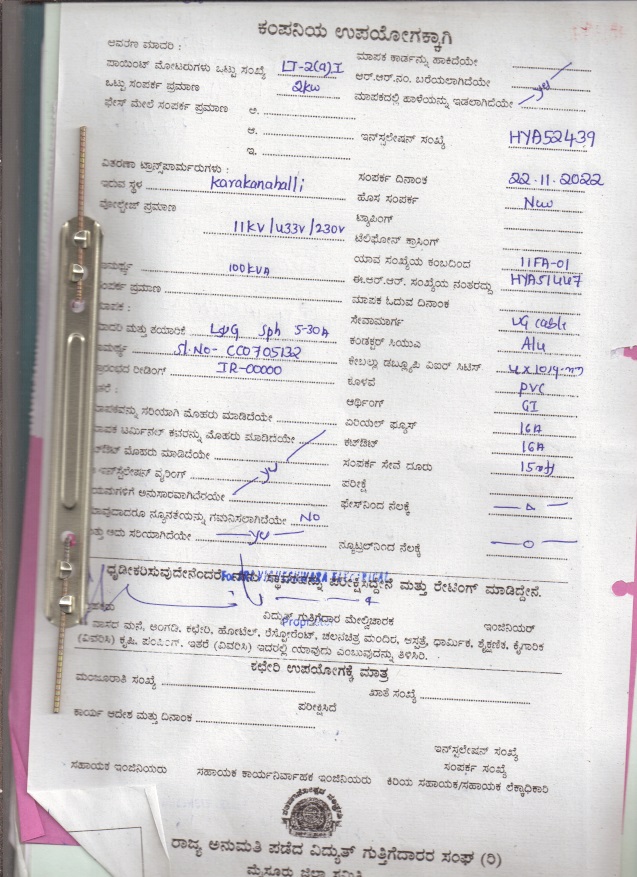 ಕಂಪನಿಯ ಉಪಯೋಗಕ್ಕಾಗಿ
ಅವತಣ ಮಾದರಿ :
ಮಾಪಕ ಕಾರ್ಡನ್ನು ಹಾಕಿದೆಯೇ
ಪಾಯಿಂಟ್ ಮೋಟರುಗಳು ಒಟ್ಟು ಸಂಖ್ಯೆ LT-2(a)I
ಆರ್.ಆರ್.ನಂ. ಬರೆಯಲಾಗಿದೆಯೇ
ಒಟ್ಟು ಸಂಪರ್ಕ ಪ್ರಮಾಣ 2kw
ಮಾಪಕದಲ್ಲಿ ಹಾಳೆಯನ್ನು ಇಡಲಾಗಿದೆಯೇ yes
ಫೇಸ್ ಮೇಲೆ ಸಂಪರ್ಕ ಪ್ರಮಾಣ ಅ.
ಆ.
ಇನ್ಸ್ಟಲೇಷನ್ ಸಂಖ್ಯೆ HYA52439
ಇ.
ವಿತರಣಾ ಟ್ರಾನ್ಸ್‌ಫಾರ್ಮರುಗಳು :
ಸಂಪರ್ಕ ದಿನಾಂಕ 22.11.2022
ಇರುವ ಸ್ಥಳ Karakanahalli
ಹೊಸ ಸಂಪರ್ಕ New
ವೋಲ್ಟೇಜ್ ಪ್ರಮಾಣ 11KV/433V/230V
ಟ್ಯಾಪಿಂಗ್
ಟೆಲಿಫೋನ್ ಕ್ರಾಸಿಂಗ್
ಯಾವ ಸಂಖ್ಯೆಯ ಕಂಬದಿಂದ 11FA-01
100KVA
ಈ.ಆರ್.ಆರ್. ಸಂಖ್ಯೆಯ ನಂತರದ್ದು HYA51447
ಸಂಪರ್ಕ ಪ್ರಮಾಣ
ಮಾಪಕ ಓದುವ ದಿನಾಂಕ
ಸೇವಾಮಾರ್ಗ UG cable
ಮಾದರಿ ಮತ್ತು ತಯಾರಿಕೆ L&G Sph 5-30A
ಕಂಡಕ್ಟರ್ ಸಿಯುಎ Alu
Sl.No- CC0705132
ಕೇಬಲ್ಲು ಡಬ್ಲ್ಯೂಪಿ ವಿಐಆರ್ ಸಿಟಿಸ್
ರೀಡಿಂಗ್ IR-00000
ಕೊಳವೆ PVC
ಅರ್ಥಿಂಗ್ GI
ಮಾಪಕವನ್ನು ಸರಿಯಾಗಿ ಮೊಹರು ಮಾಡಿದೆಯೇ
ಏರಿಯಲ್ ಫ್ಯೂಸ್ 16A
ಮಾಪಕ ಟರ್ಮಿನಲ್ ಕವರನ್ನು ಮೊಹರು ಮಾಡಿದೆಯೇ
ಕಟ್‌ಔಟ್ 16A
ಕಟ್‌ಔಟ್ ಮೊಹರು ಮಾಡಿದೆಯೇ
ಸಂಪರ್ಕ ಸೇವೆ ದೂರು 15mt
ಇನ್ಸ್ಟಲೇಷನ್ ವೈರಿಂಗ್ yes
ಪರೀಕ್ಷೆ
ನಿಯಮಗಳಿಗೆ ಅನುಸಾರವಾಗಿವೆಯೇ
ಫೇಸ್‌ನಿಂದ ನೆಲಕ್ಕೆ
ಯಾವುದಾದರೂ ನ್ಯೂನತೆಯನ್ನು ಗಮನಿಸಲಾಗಿದೆಯೇ NO
ಮತ್ತು ಅದು ಸರಿಯಾಗಿದೆಯೇ yes
ನ್ಯೂಟ್ರಲ್‌ನಿಂದ ನೆಲಕ್ಕೆ — 0 —
ಧೃಡೀಕರಿಸುವುದೇನೆಂದರೆ, ನಾನು ಸ್ಥಾವರವನ್ನು ಪರೀಕ್ಷಿಸಿದ್ದೇನೆ ಮತ್ತು ರೇಟಿಂಗ್ ಮಾಡಿದ್ದೇನೆ.
ವಿದ್ಯುತ್ ಗುತ್ತಿಗೆದಾರ ಮೇಲ್ವಿಚಾರಕ ಇಂಜಿನಿಯರ್
Proprietor
ವಾಸದ ಮನೆ, ಅಂಗಡಿ, ಕಛೇರಿ, ಹೋಟೆಲ್, ರೆಸ್ಟೋರೆಂಟ್, ಚಲನಚಿತ್ರ ಮಂದಿರ, ಆಸ್ಪತ್ರೆ, ಧಾರ್ಮಿಕ, ಶೈಕ್ಷಣಿಕ, ಕೈಗಾರಿಕ
(ವಿವರಿಸಿ) ಕೃಷಿ, ಪಂಪಿಂಗ್, ಇತರೆ (ವಿವರಿಸಿ) ಇದರಲ್ಲಿ ಯಾವುದು ಎಂಬುವುದನ್ನು ತಿಳಿಸಿರಿ.
ಕಛೇರಿ ಉಪಯೋಗಕ್ಕೆ ಮಾತ್ರ
ಮಂಜೂರಾತಿ ಸಂಖ್ಯೆ
ಖಾತೆ ಸಂಖ್ಯೆ
ಪರೀಕ್ಷಿಸಿದೆ
ಕಾರ್ಯ ಆದೇಶ ಮತ್ತು ದಿನಾಂಕ
ಇನ್ಸ್ಟಲೇಷನ್ ಸಂಖ್ಯೆ
ಸಂಪರ್ಕ ಸಂಖ್ಯೆ
ಸಹಾಯಕ ಇಂಜಿನಿಯರು ಸಹಾಯಕ ಕಾರ್ಯನಿರ್ವಾಹಕ ಇಂಜಿನಿಯರು ಕಿರಿಯ ಸಹಾಯಕ/ಸಹಾಯಕ ಲೆಕ್ಕಾಧಿಕಾರಿ
ರಾಜ್ಯ ಅನುಮತಿ ಪಡೆದ ವಿದ್ಯುತ್ ಗುತ್ತಿಗೆದಾರರ ಸಂಘ (ರಿ)
ಮೈಸೂರು ಜಿಲ್ಲಾ ಸಮಿತಿ